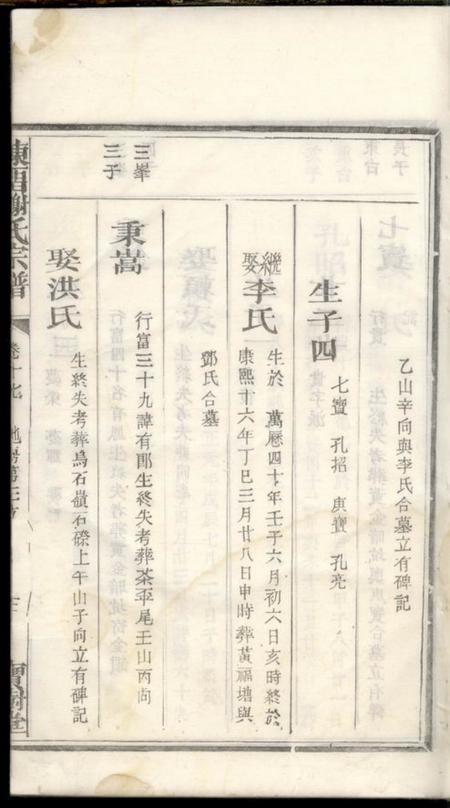 乙山辛向與李氏合墓立有碑記
生子四
七寶 孔招 庚寶 孔亮
繼娶李氏
生於萬厯四十年壬子六月初六日亥時終於
康熙十六年丁巳三月廿八日申時葬黃福塘與
鄧氏合墓
三峯三子
秉嵩
行富三十九諱有郎生終失考葬茶平尾壬山丙向
娶洪氏
生終失考葬烏石嶺石磜上午山子向立有碑記
謝氏宗譜
卷十七
寶樹堂